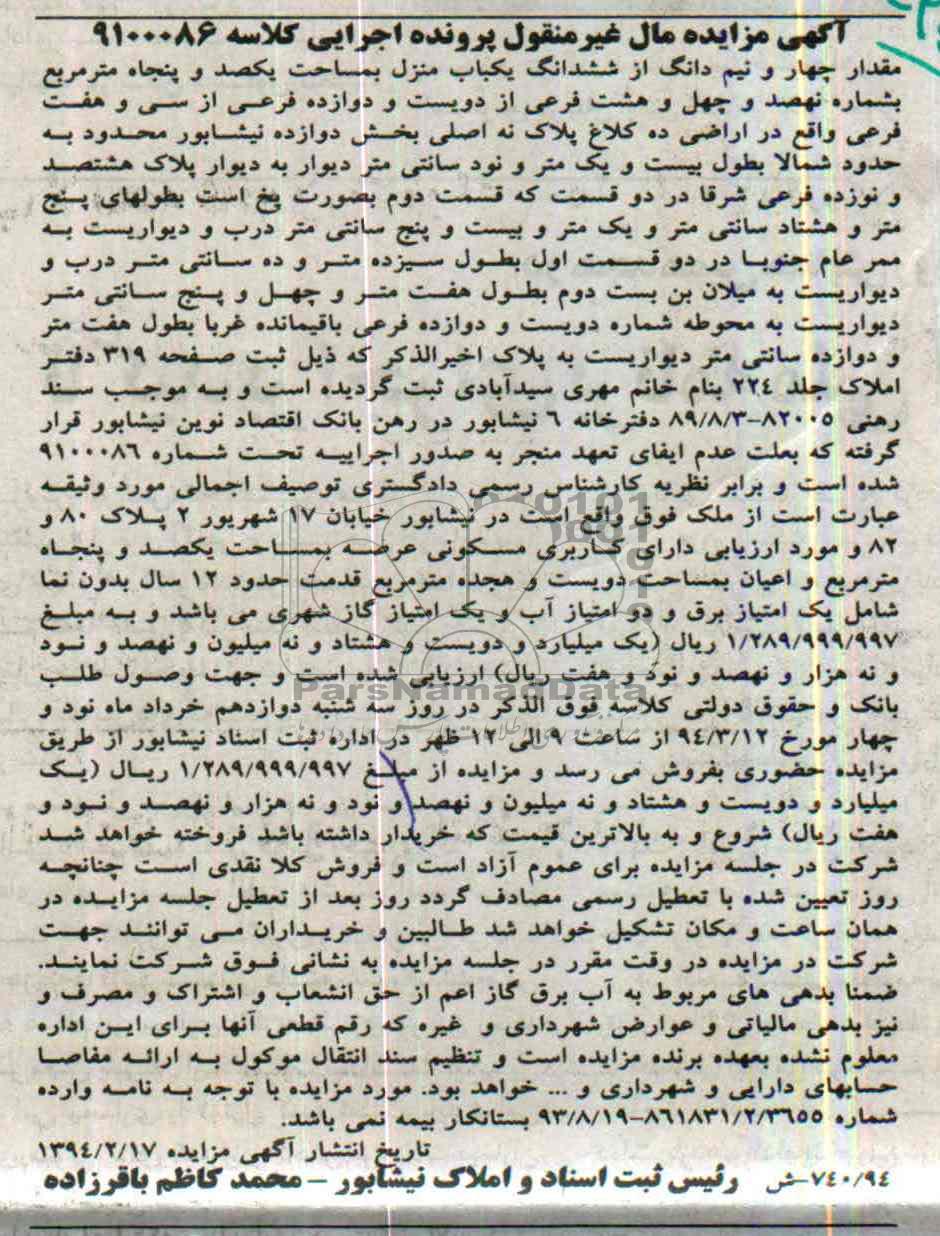 آگهی مزایده مال غیرمنقول پرونده اجرایی کلاسه ۹۱۰۰۰۸۶
مقدار چهار و نیم دانگ از ششدانگ یکباب منزل بمساحت یکصد و پنجاه مترمربع
بشماره نهصد و چهل و هشت فرعی از دویست و دوازده فرعی از سی و هفت
فرعی واقع در اراضی ده کلاغ پلاک نه اصلی بخش دوازده نیشابور محدود به
حدود شمالا بطول بیست و یک متر و نود سانتی متر دیوار به دیوار پلاک هشتصد
و نوزده فرعی شرقا در دو قسمت که قسمت دوم بصورت پخ است بطولهای پنج
متر و هشتاد سانتی متر و یک متر و بیست و پنج سانتی متر درب و دیواریست به
ممر عام جنوبا در دو قسمت اول بطول سیزده متر و ده سانتی متر درب و
دیواریست به میلان بن بست دوم بطول هفت متر و چهل و پنج سانتی متر
دیواریست به محوطه شماره دویست و دوازده فرعی باقیمانده غربا بطول هفت متر
و دوازده سانتی متر دیواریست به پلاک اخیرالذکر که ذیل ثبت صفحه ۳۱۹ دفتر
املاک جلد ۲۲٤ بنام خانم مهری سیدآبادی ثبت گردیده است و به موجب سند
رهنی ۸۲۰۰۵-۸۹/۸/۳ دفترخانه ۶ نیشابور در رهن بانک اقتصاد نوین نیشابور قرار
گرفته که بعلت عدم ایفای تعهد منجر به صدور اجراییه تحت شماره ۹۱۰۰۰۸۶
شده است و برابر نظریه کارشناس رسمی دادگستری توصیف اجمالی مورد وثیقه
عبارت است از ملک فوق واقع است در نیشابور خیابان ۱۷ شهریور ۲ پلاک ۸۰ و
۸۲ و مورد ارزیابی دارای کاربری مسکونی عرصه بمساحت یکصد و پنجاه
مترمربع و اعیان بمساحت دویست و هجده مترمربع قدمت حدود ۱۲ سال بدون نما
شامل یک امتیاز برق و دو امتیاز آب و یک امتیاز گاز شهری می باشد و به مبلغ
۱/۲۸۹/۹۹۹/۹۹۷ ریال (یک میلیارد و دویست و هشتاد و نه میلیون و نهصد و نود
و نه هزار و نهصد و نود و هفت ریال) ارزیابی شده است و جهت وصول طلب
بانک و حقوق دولتی کلاسه فوق الذکر در روز سه شنبه دوازدهم خرداد ماه نود و
چهار مورخ ۹٤/۳/۱۲ از ساعت ۹ الی ۱۲ ظهر در اداره ثبت اسناد نیشابور از طریق
مزایده حضوری بفروش می رسد و مزایده از مبلغ ۱/۲۸۹/۹۹۹/۹۹۷ ریال (یک
میلیارد و دویست و هشتاد و نه میلیون و نهصد و نود و نه هزار و نهصد و نود و
هفت ریال) شروع و به بالاترین قیمت که خریدار داشته باشد فروخته خواهد شد
شرکت در جلسه مزایده برای عموم آزاد است و فروش کلا نقدی است چنانچه
روز تعیین شده با تعطیل رسمی مصادف گردد روز بعد از تعطیل جلسه مزایده در
همان ساعت و مکان تشکیل خواهد شد طالبین و خریداران می توانند جهت
شرکت در مزایده در وقت مقرر در جلسه مزایده به نشانی فوق شرکت نمایند.
ضمنا بدهی های مربوط به آب برق گاز اعم از حق انشعاب و اشتراک و مصرف و
نیز بدهی مالیاتی و عوارض شهرداری و غیره که رقم قطعی آنها برای این اداره
معلوم نشده بعهده برنده مزایده است و تنظیم سند انتقال موکول به ارائه مفاصا
حسابهای دارایی و شهرداری و ... خواهد بود. مورد مزایده با توجه به نامه وارده
شماره ۸۶۱۸۳۱/۲/۳۶۵۵-۹۳/۸/۱۹ بستانکار بیمه نمی باشد.
تاریخ انتشار آگهی مزایده ۱۳۹٤/۲/۱۷
۷٤۰/۹٤-ش رئیس ثبت اسناد و املاک نیشابور - محمد کاظم باقرزاده
ParsNamadData